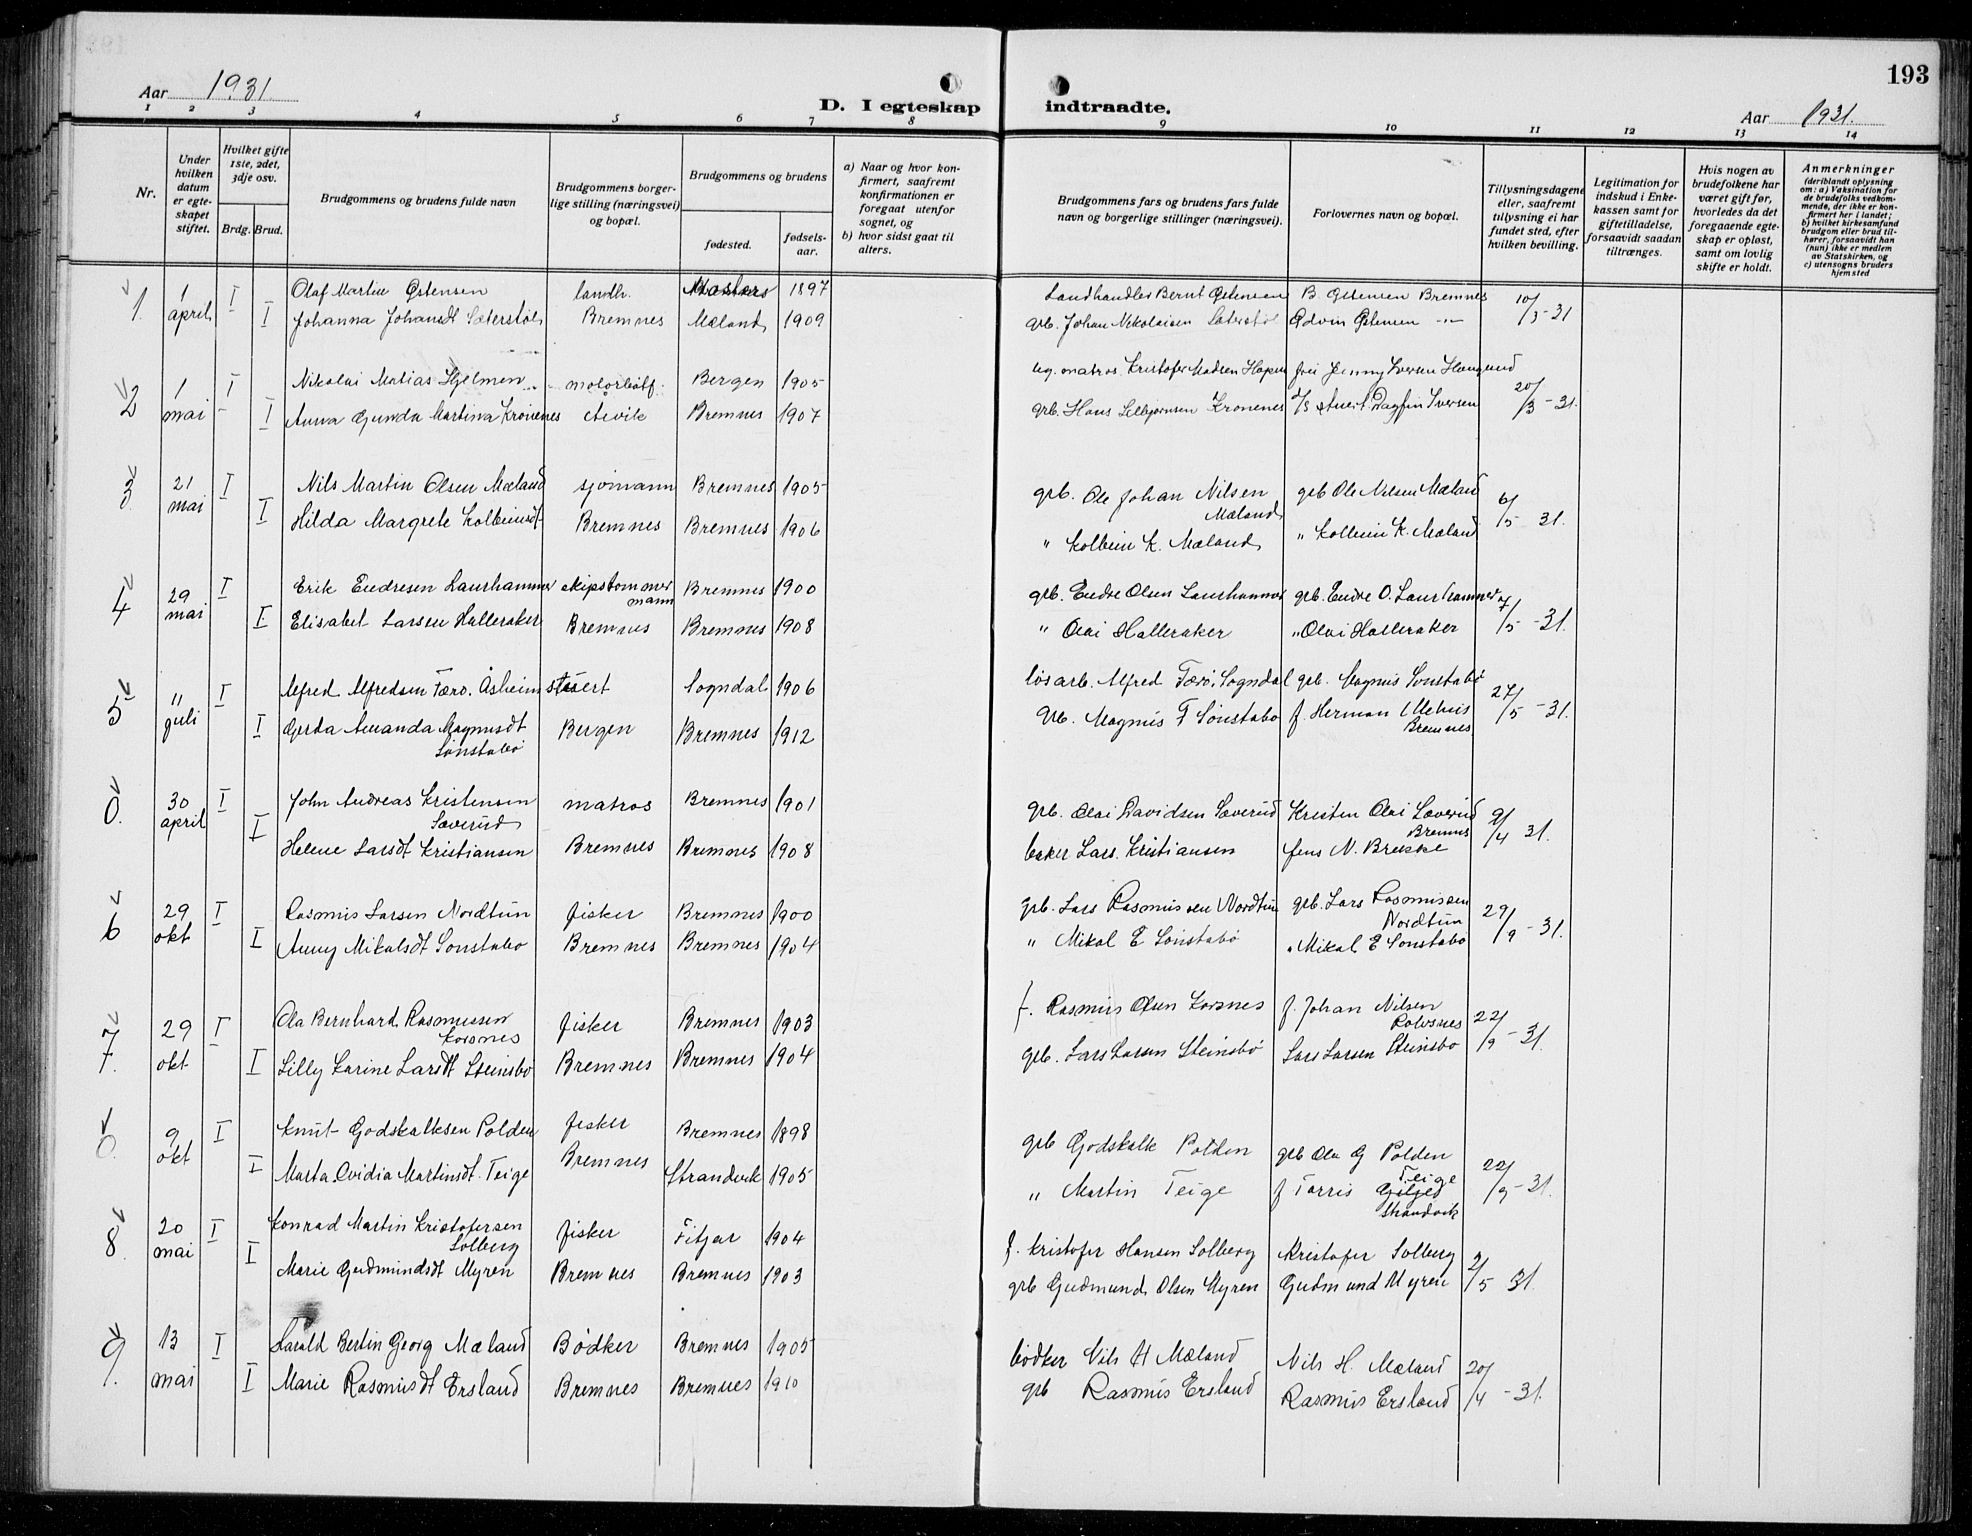 193
Aar 1931
D. I egteskap indtraadte.
Aar 1931.
1 2 3 4 5 6 7 8 9 10 11 12 13 14
Nr.
Under hvilken datum er egteskapet stiftet.
Hvilket gifte 1ste, 2det, 3dje osv.
Brdg. Brud.
Brudgommens og brudens fulde navn
Brudgommens borgerlige stilling (næringsvei) og bopæl.
Brudgommens og brudens
fødested.
fødselsaar.
a) Naar og hvor konfirmert, saafremt konfirmationen er foregaat utenfor sognet, og
b) hvor sidst gaat til alters.
Brudgommens fars og brudens fars fulde navn og borgerlige stillinger (næringsvei).
Forlovernes navn og bopæl.
Tillysningsdagene eller, saafremt tillysning ei har fundet sted, efter hvilken bevilling.
Legitimation for indskud i Enkekassen samt for giftetilladelse, forsaavidt saadan tiltrænges.
Hvis nogen av brudefolkene har været gift før, hvorledes da det foregaaende egteskap er opløst, samt om lovlig skifte er holdt.
Anmerkninger (deriblandt oplysning om: a) Vaksination for de brudefolks vedkommende, der ikke er konfirmert her i landet; b) hvilket kirkesamfund brudgom eller brud tilhører, forsaavidt han (hun) ikke er medlem av Statskirken, og c) utensogns bruders hjemsted
1. 1 I Olaf Martin Østensen landh. 1897 Landhandler Bernt Østensen B Østensen Bremnes 10/3-31
april I Johanna Johansdt Sæterstøl Bremnes Mæland 1909 grb. Johan Nikolaisen Sæterstøl Edvin Østensen -"-
2 1 I Nikolai Matias Hjelmen motorbåtf. Bergen 1905 matros Kristofer Madsen frøi Jenny Iversen Haugsund 20/3-31.
mai I Anna Gunda Martina Kronenes Bremnes 1907 grb. Hans Lilbjørnsen Kronenes Dagfin Iversen
3. 21 I Nils Martin Olsen Mæland sjømann Bremnes 1905 grb. Ole Johan Nilsen Mæland grb Ole Nilsen Mæland 6/5 31.
mai I Hilda Margrete Kolbeinsdt Bremnes Bremnes 1906 " Kolbein K. Mæland " Kolbein K. Mæland
4 29 I Erik Endresen Laurhammer skipstømmermann Bremnes 1900 grb. Endre Olsen Laurhammer grb. Endre O. Laurhammer 7/5-31.
mai I Elisabet Larsen Halleraker Bremnes Bremnes 1908 " Olai Halleraker " Olai Halleraker
5 11 I Alfred Alfredsen Færo. Åsheim stuert Sogndal 1906 løsarb. Alfred Færø, Sogndal grb. Magnus Sønstabø 27/5-31.
juli I Gerda Amanda Magnusdt Sønstabø Bergen Bremnes 1912 grb. Magnus F Sønstabø f. Herman Bremnes
0. 30 I John Andreas Kristensen Sæverud matros Bremnes 1901 grb. Olai Davidsen Sæverud Kristen Olai Sæverud Bremnes 9/4 31.
april I Helene Larsdt Kristiansen Bremnes Bremnes 1908 baker Lars Kristiansen Jens N. Brekke
6 29 I Rasmus Larsen Nordtun fisker Bremnes 1900 grb. Lars Rasmussen Nordtun grb. Lars Rasmussen Nordtun 29/9-31.
okt I Anny Mikalsdt Sønstabø Bremnes Bremnes 1904 " Mikal E Sønstabø " Mikal E Sønstabø
7. 29 I Ola Bernhard Rasmussen Korsnes fisker Bremnes 1903 f. Rasmus Olsen Korsnes f. Johan Nilsen Rolvsnes 22/9-31.
okt I Lilly Karine Larsdt Steinsbø Bremnes Bremnes 1904 grb. Lars Larsen Steinsbø Lars Larsen Steinsbø
0. 9 I Knut Godskalksen Polden fisker Bremnes 1898 grb Godskalk Polden grb Ola G Polden 22/9-31.
okt I Marta Ovidia Martinsdt. Teige Bremnes Strandvik 1905 " Martin Teige f Torris Teige Strandvik
8. 20 I Konrad Martin Kristofersen Solberg fisker Fitjar 1904 f. Kristofer Hansen Solberg Kristofer Solberg 2/5 31.
mai I Marie Gudmundsdt Myren Bremnes Bremnes 1903 grb Gudmund Olsen Myren Gudmund Myren
9. 13 I Harald Bertin Georg Mæland Bødker Bremnes 1905 bødker Nils H Mæland Nils H. Mæland 20/4-31.
mai I Marie Rasmusdt Ersland Bremnes Bremnes 1910 grb Rasmus Ersland Rasmus Ersland